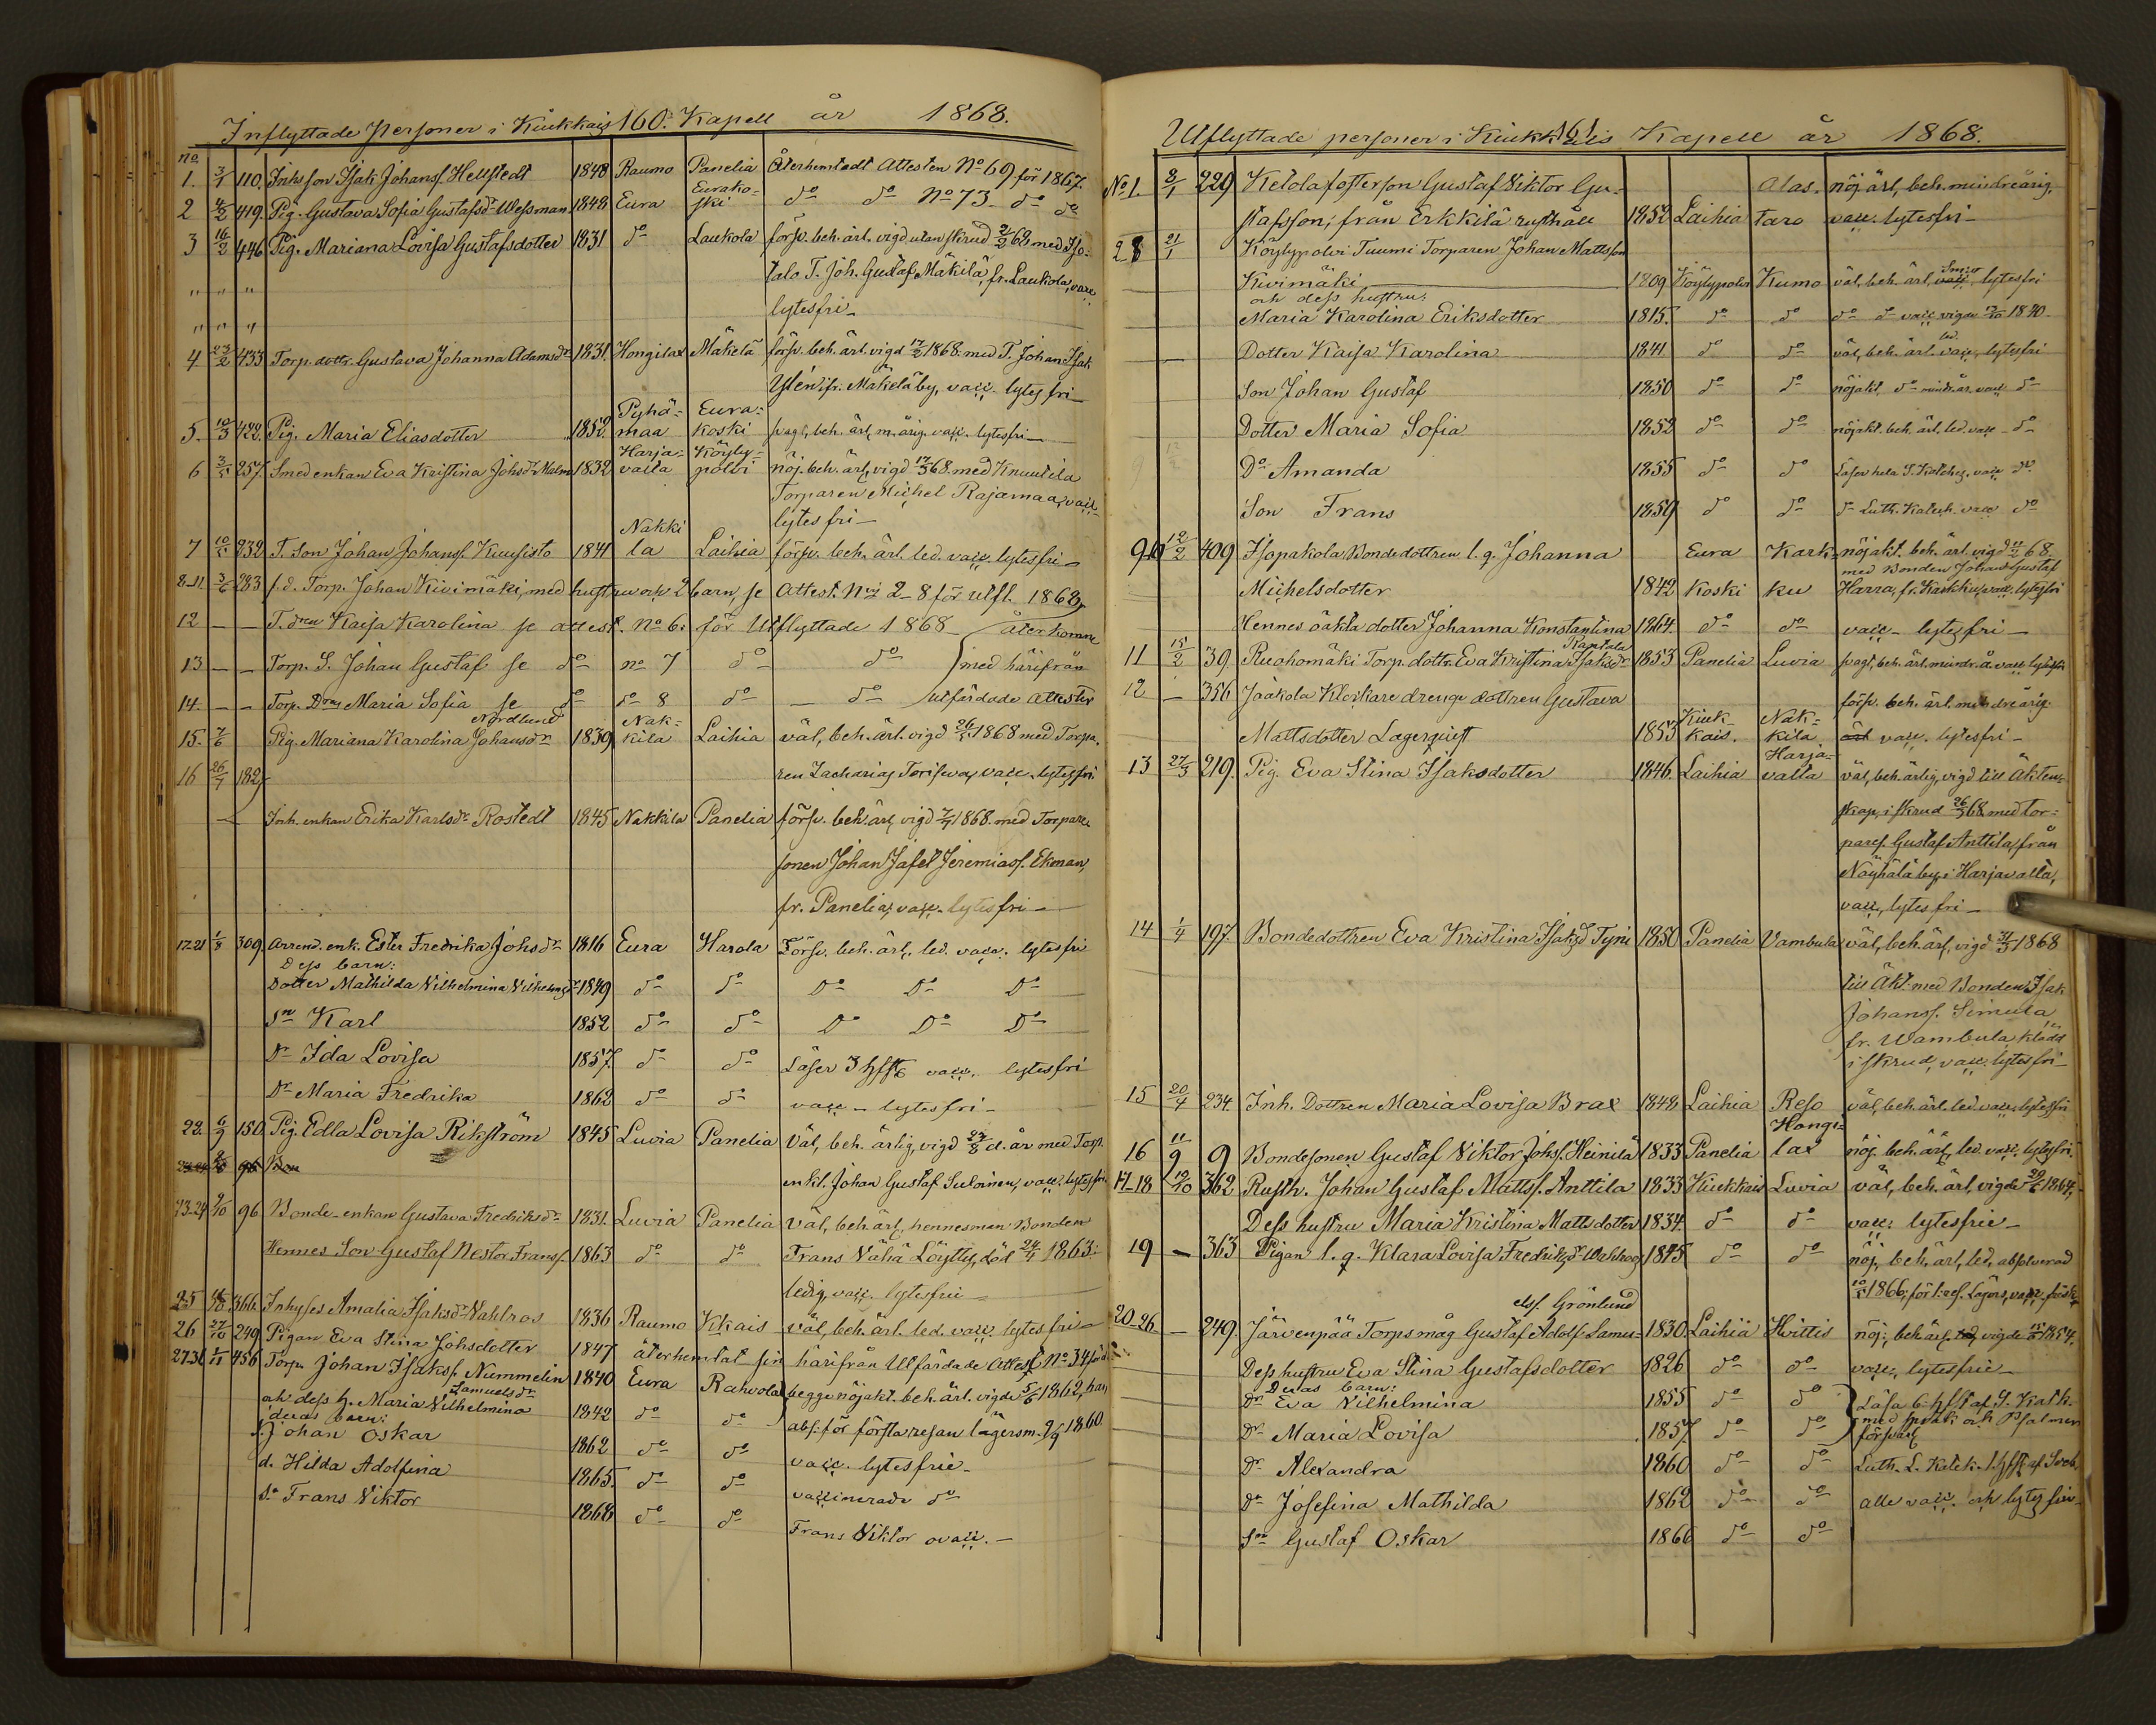 Inflyttade Personer i Kiukkais 160. Kapell år 1868.
No.
1. 3/1 110. Inhs son Isak Johans. Hellstedt 1848 Raumo Panelia Återhemtadt Attesten No 69 för 1867.
2 4/2 419. Pig. Gustava Sofia Gustafsdr Wessman 1848 Eura Eurako-
ski do do No 73 do do
3 16/2 446 Pig. Mariana Lovisa Gustafsdotter 1831 do Laukola försv. beh. ärl. vigd utan skrud 2/2 68 med Iso-
" " " talo T. Joh. Gustaf Mäkilä, fr. Laukola, vacc.
" " " lytesfri
4 23/2 433 Torp. dottr. Gustava Johanna Adamsdr 1831. Hongilax Mäkelä försv. beh. ärl. vigd 1868 med T. Johan Isak
Ylén fr. Mäkelä by, vacc. lytesfri
5. 10/3 422. Pig. Maria Eliasdotter 1852. Pyhä-
maa Eura-
koski svagt, beh. ärl. m. årig. vacc. lytesfri
6 3/5 257. Smedenkan Eva Kristina Johsdr Malm 1832 Harja-
valta Köyly-
polvi nöj. beh. ärl. vigd 68 med Knuutila
Torparen Michel Rajamaa, vacc.
lytesfri
7 10/5 232 T. Son Johan Johanss. Kuusisto 1841 Nakki
la Laihia försv. beh. ärl. led. vacc. lytesfri
8-11. 3/6 283 f.d. Torp. Johan Kivimäki, med hustru och 2 barn, se Attest. No 2-8 för utfl. 1868
12 — — T. dren Kaisa Karolina se attest. No 6. för Utflyttade 1868 återkomne
13 — — Torp. S. Johan Gustaf se do no 7 do do med härifrån
14 — — Torp. Dren Maria Sofia se do do 8 do do utfärdade attester
15. 7/6 Pig. Mariana Karolina Johansdr Nordlund 1839 Nak-
kila Laihia väl, beh. ärl. vigd 26/5 1868 med Torpa-
16 26/7 182 ren Zacharias Torisev, vacc. lytesfri
Inh. enkan Erika Karlsdr Rostedt 1845 Nakkila Panelia försv. beh. ärl. vigd 1868 med Torpare
sonen Johan Jafet Jeremiass. Ekman,
fr. Panelia, vacc. lytesfri
17-21 1/8 309. Arrend. enk. Ester Fredrika Johsdr 1816 Eura Harola Försv. beh. ärl. led. vacc. lytesfri
Dess barn:
Dotter Mathilda Vilhelmina Vilhelmsdr 1849 do do Do Do Do
Sn Karl 1852 do do Do Do Do
Dr Ida Lovisa 1857. do do Läser 3 hfst vacc. lytesfri
Dr Maria Fredrika 1862 do do vacc. lytesfri
22. 6/9 150. Pig. Edla Lovisa Rikström 1845 Luvia Panelia Väl, beh. ärlig, vigd 24/8 d. år med Torp.
96 Bon enkl. Johan Gustaf Suloinen, vacc. lytesfri
23-24 9/10 96 Bonde-enkan Gustava Fredriksdr 1831. Luvia Panelia Väl, beh. ärl, hennes man Bonden
Hennes Son Gustaf Nestor Frans. 1863 do do Frans Vähä Löytty, död 24/4 1863.
ledig, vacc. lytesfrie
25 366. Inhyses Amalia Isaksdr Vahlros 1836 Raumo Kkais väl, beh. ärl. led. vacc. lytesfri
26 27/10 249 Pigan Eva Stina Johsdotter 1847 återhemtat sin härifrån Utfärdade Attest No 34 för
27-31 1/11 456 Torp. Johan Isakss. Nummelin 1840 Eura Rahvola begge nöjakt. beh. ärl. vigde 5/6 1862, han
ock dess h. Maria Vilhelmina Samuelsdr 1842 do do abs. för första resan lägersm. 2/9 1860.
deras barn:
S. Johan Oskar 1862 do do vacc. lytesfrie
d. Hilda Adolfina 1865. do do vaccinerade do
Sn Frans Viktor 1868 do do Frans Viktor ovacc.
Utflyttade personer i Kiukkais 161 Kapell år 1868.
No 1. 2/1 229 Ketola fosterson Gustaf Viktor Gu-
stafsson, från Erkkilä rusthåll 1852 Laihia Alas-
taro nöj. ärl, beh. mindreårig,
vacc. lytesfri
2 8 21/1 Köylypolvi Tuumi Torparen Johan Mattsson
Kivimäki 1809 Köylypolvi Kumo väl, beh. ärl, vacc. lytesfri
och dess hustru:
Maria Karolina Eriksdotter 1815. do do do do vacc vigde 1840
Dotter Kaisa Karolina 1841 do do väl, beh. ärl. led. vacc. lytesfri
Son Johan Gustaf 1850 do do nöjakt, do mindr.år. vacc do
Dotter Maria Sofia 1852 do do nöjakt. beh. ärl. led. vacc do
Do Amanda 1855 do do Läser hela S. Kateches, vacc do
Son Frans 1859 do do do Luth. Katech. vacc do
9-10 12/2 409 Isopakola Bondedottren l.q. Johanna
Michelsdotter 1842 Eura
koski Kark-
ku nöjakt. beh. ärl. vigd 11/2 68.
med Bonden Johan Gustaf
Harra, fr. Karkku, vacc. lytesfri
Hennes oäkta dotter Johanna Konstantina 1864. do do vacc lytesfri
11 15/2 39. Ruohomäki Torp. dottr. Eva Kristina Isaksdr Rantala 1853 Panelia Luvia svagt, beh. ärl. mindr. å. vacc lytesfri
12 — 356 Jaakola Klockare drenge dottren Gustava
Mattsdotter Lagerquist 1853 Kiuk-
kais. Nak-
kila försv. beh. ärl. mindreårig.
vacc. lytesfri
13 27/3 219. Pig. Eva Stina Isaksdotter 1846. Laihia Harja-
valta väl, beh. ärlig, vigd till Äkten-
skap, i skrud 26/3 68 med tor-
pares. Gustaf Anttila från
Näyhälä by i Harjavalta,
vacc. lytesfri
14 1/4 197. Bondedottren Eva Kristina Isaksd Tyni 1850 Panelia Vambula väl, beh. ärl, vigd 31/3 1868
till Äkt. med Bonden Isak
Johanss. Simula
fr. Wambula klädd
i skrud, vacc. lytesfri
15 20/4 234. Inh. Dottren Maria Lovisa Brax 1848 Laihia Reso väl, beh. ärl. led. vacc. lytesfri
16 11/9 9 Bondesonen Gustaf Viktor Johs. Heinilä 1833 Panelia Hongi-
lax nöj. beh. ärl, led. vacc. lytesfri.
17-18 12/10 362 Rusth. Johan Gustaf Matts. Anttila 1833 Kiukkais Luvia väl, beh. ärl, vigde 1864,
Dess hustru Maria Kristina Mattsdotter 1834. do do vacc. lytesfrie
19 — 363 Pigan l.q. Klara Lovisa Fredriksdr Wahlroos 1845 do do nöj, beh. ärl, led, absolverad
10/5 1866, för 1. res. Lägers, vacc. försv.
20-26 — 249. Järvenpää Torps måg Gustaf Adolf Samu-
elss. Grönlund 1830. Laihia Hvittis nöj, beh. ärl, vigde 1854.
Dess hustru Eva Stina Gustafsdotter 1826 do do vacc. lytesfrie
Deras barn:
Dr Eva Vilhelmina 1855 do do Läsa 6 hfst af S. Katk.
Dr Maria Lovisa 1857. do do med språk och Psalmen
försvarl
Dr Alexandra 1860 do do Luth. L. Katek. 1 hfst af Sveb.
Dr Josefina Mathilda 1862 do do alle vacc. och lytesfri
Sn Gustaf Oskar 1866 do do